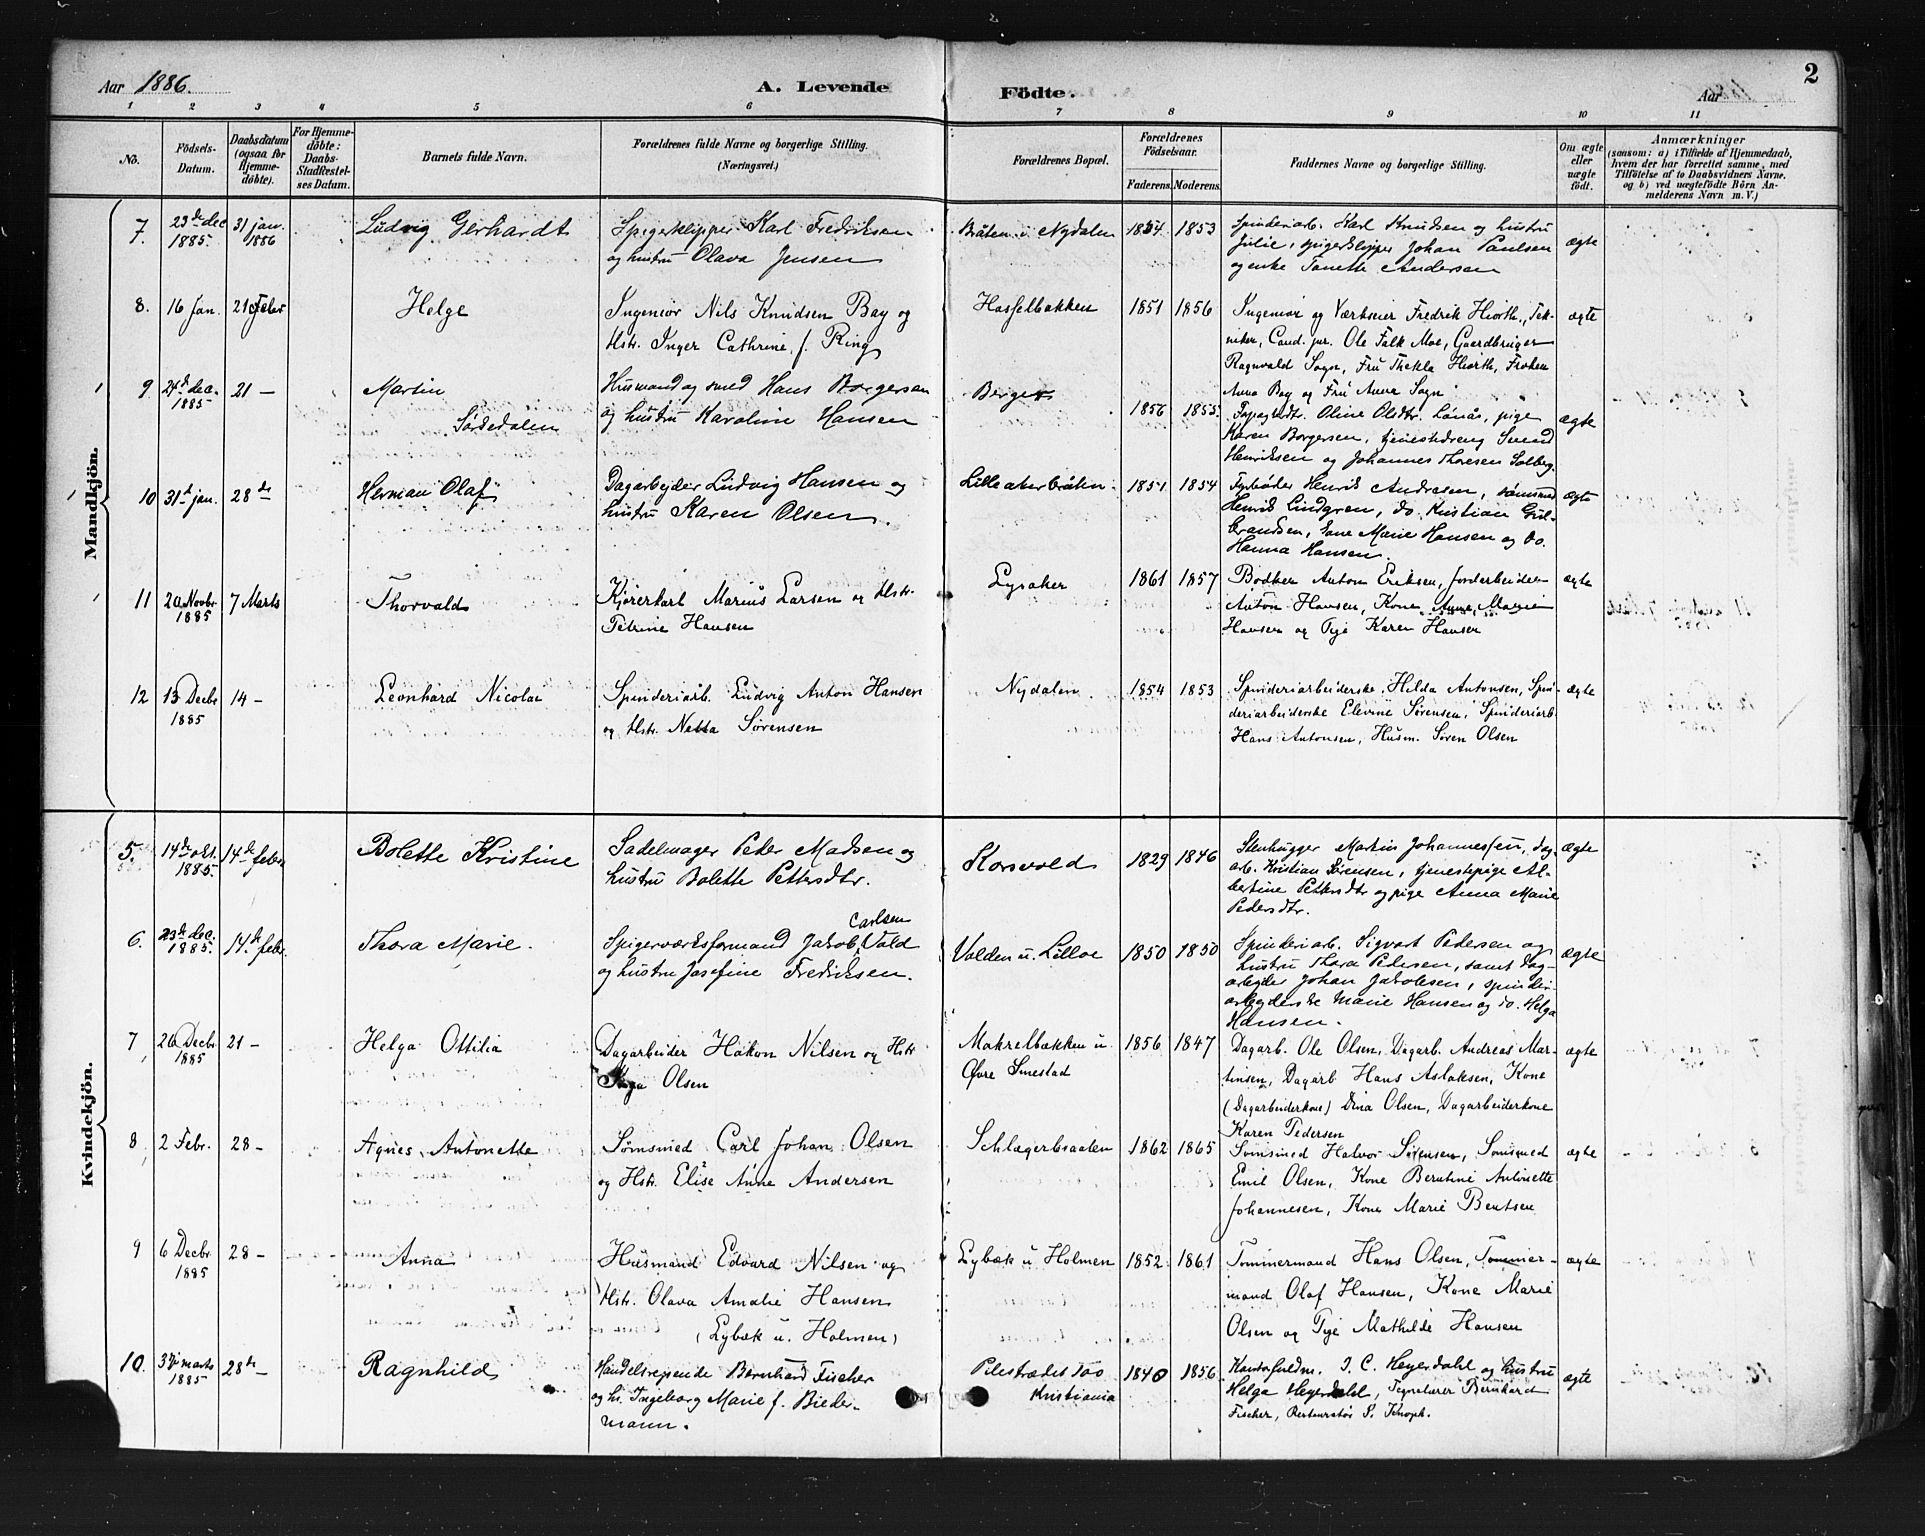 Aar 1886.
A. Levende Födte.
Aar
2
1 2 3 4 5 6 7 8 9 10 11
No.
Födsels-Datum.
Daabsdatum (ogsaa for Hjemme-døbte).
For Hjemme-døbte: Daabs-Stadfæstel-ses Datum.
Barnets fulde Navn.
Forældrenes fulde Navne og borgerlige Stilling. (Næringsvei.)
Forældrenes Bopæl.
Forældrenes Födselsaar.
Faderens. Moderens.
Faddernes Navne og borgerlige Stilling.
Om ægte eller uægte födt.
Anmærkninger
(saasom: a) i Tilfælde af Hjemmedaab, hvem der har forrettet samme, med Tilföielse af to Daabsvidners Navne. og b) ved uægtefödte Börn An-melderens Navn m. V.)
Mandkjön.
7. 23de dec 1885. 31 jan. 1886 Ludvig Gerhardt
Spigerklipper Karl Fredriksen
og hustru Olava Jensen
Bråten u. Nydalen 1854 1853
Spinderiarb. Karl Knudsen og hustru
Julie, spigerklipper Johan Paulsen
og enke Tanette Andersen
ægte
8. 16 Jan. 21 Febr Helge
Ingeniør Nils Knudsen Bay og
Hstr. Inger Cathrine f. Ring
Hasselbakken 1851 1856
Ingeniør og Værkseier Fredrik Hiorth, Tek-
niker, Cand. jur. Ole Falk Moe, Gaardbruger
Ragnvald Sogn, Fru Thekla Hiorth, Frøken
Anna Bay og Fru Anna Sogn
ægte
9 24de dec. 1885 21 — Martin
Sørkedalen
Husmand og smed Hans Borgersen
og hustru Karoline Hansen
Berger 1856 1855.
Oline Olsdtr. Lønås, pige
Karen Borgersen, tjenestedreng Svend
Henriksen og Johannes Thoresen Solberg.
ægte
10 31te jan. 28de Herman Olaf
Dagarbeyder Ludvig Hansen og
hustru Karen Olsen.
Lilleakerbråten. 1851 1854
Fyrbøder Henrik Andresen, sømsmed
Henrik Lindgren, do. Kristian Gul-
brandsen, Lane Marie Hansen og do.
Hanna Hansen.
ægte
11 20 Novbr 1885 7 Marts Thorvald
Kjørerkarl Marius Larsen og Hstr.
Petrine Hansen
Lysaker 1861 1857
Bødker Anton Eriksen, Jordarbeider
Anton Hansen, Kone Anne Marie
Hansen og Pige Karen Hansen
ægte
12 13 Decbr 1885 14 — Leonhard Nicolai
Spinderiarb. Ludvig Anton Hansen
og Hstr. Netta Sørensen
Nydalen 1854 1853
Spinderiarbeiderske Hilda Antonsen, Spin-
deriarbeiderske Elevine Sørensen, Spinderiarb.
Hans Antonsen, Husm. Søren Olsen
ægte
Kvindekjön.
5. 14de okt. 1885. 14de febr Bolette Kristine
Sadelmager Peder Madsen og
hustru Bolette Pettersdtr.
Korsvold 1829 1846
Stenhugger Martin Johannessen, dag-
arb. Kristian Sørensen, tjenestepige Al-
bertine Pettersdtr og pige Anna Marie
Pedersdtr.
ægte
6. 23de dec. 1885. 14de febr. Thora Marie.
Carlsen
Spigerværksformand Jakob Vold
og hustru Josefine Fredriksen.
Volden u. Lilloe 1850 1850
Spinderiarb. Sigvart Pedersen og
hustru Thora Pedersen, samt dag-
arbeyder Johan Jakobsen, spinderi-
arbeyderske Marie Hansen og do. Helga
Hansen.
ægte
7 26 Decbr 1885 21 — Helga Ottilia
Dagarbeider Håkon Nilsen og Hstr
Inga Olsen
Makrelbækken u. Øvre Smestad 1856 1847
Dagarb. Ole Olsen, Dagarb. Andreas Mar-
tinsen, Dagarb Hans Aslaksen, Kone
(Dagarbeiderkone) Dina Olsen, Dagarbeiderkone
Karen Pedersen
ægte
8 2 Febr. 28 — Agnes Antonette
Sømsmed Carl Johan Olsen
og Hstr. Elise Anne Andersen
Schlagerbraaten 1862 1865
Sømsmed Halvor Sørensen, Sømsmed
Emil Olsen, Kone Berntine Antonette
Johannesen, Kone Marie Bentsen
ægte
9 6 Decbr. 1885 28 — Anna
Husmand Edvard Nilsen og
Hstr. Olava Amalie Hansen
(Lybæk u. Holmen)
Lybæk u Holmen 1852 1861
Tømmermand Hans Olsen, Tømmer-
mand Olaf Hansen, Kone Marie
Olsen og Pige Mathilde Hansen
ægte
10. marts 1885 28de Ragnhild
Handelsreisende Bernhard Fischer
og h. Ingeborg Marie f. Bieder-
mann.
Pilestrædet 100 Kristiania 1840 1856
Kontorfuldm. I. C. Heyerdahl og hustru
Helga Heyerdahl, Tegnelærer Bernhard
Fischer, Restauratør S. Knoph.
ægte